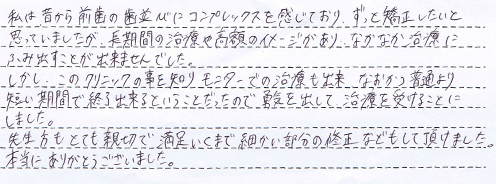 私は昔から前歯の歯並びにコンプレックスを感じており、ずっと矯正したいと
思っていましたが、長期間の治療や高額のイメージがあり、なかなか治療に
ふみ出すことが出来ませんでした。
しかし、このクリニックの事を知りモニターでの治療も出来、なおかつ普通より
短い期間で終了出来るということだったので勇気を出して、治療を受けることに
しました。
先生方もとても親切で満足いくまで細かい部分の修正などもして頂けました。
本当にありがとうございました。